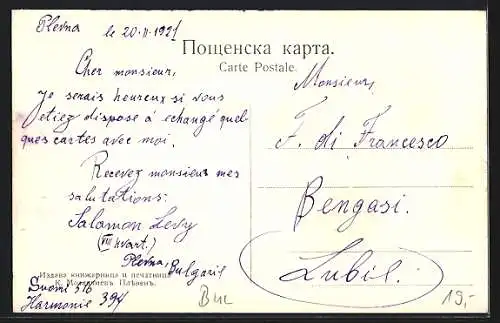 Plevna le 20-II-1921
Пощенска карта.
Carte Postale.
Cher monsieur,
Je serais heureux si vous
etiez dispose à echangé quel-
ques cartes avec moi.
Recevez monsieur mes
salutations:
Salamon Levy
(VIII kvart.)
Plevna, Bulgarie
Издава книжарница и печатница
Suomi 516
Harmonie 394
Monsieur,
F. di Francesco
Bengasi.
Lubil.
Bul
19,-